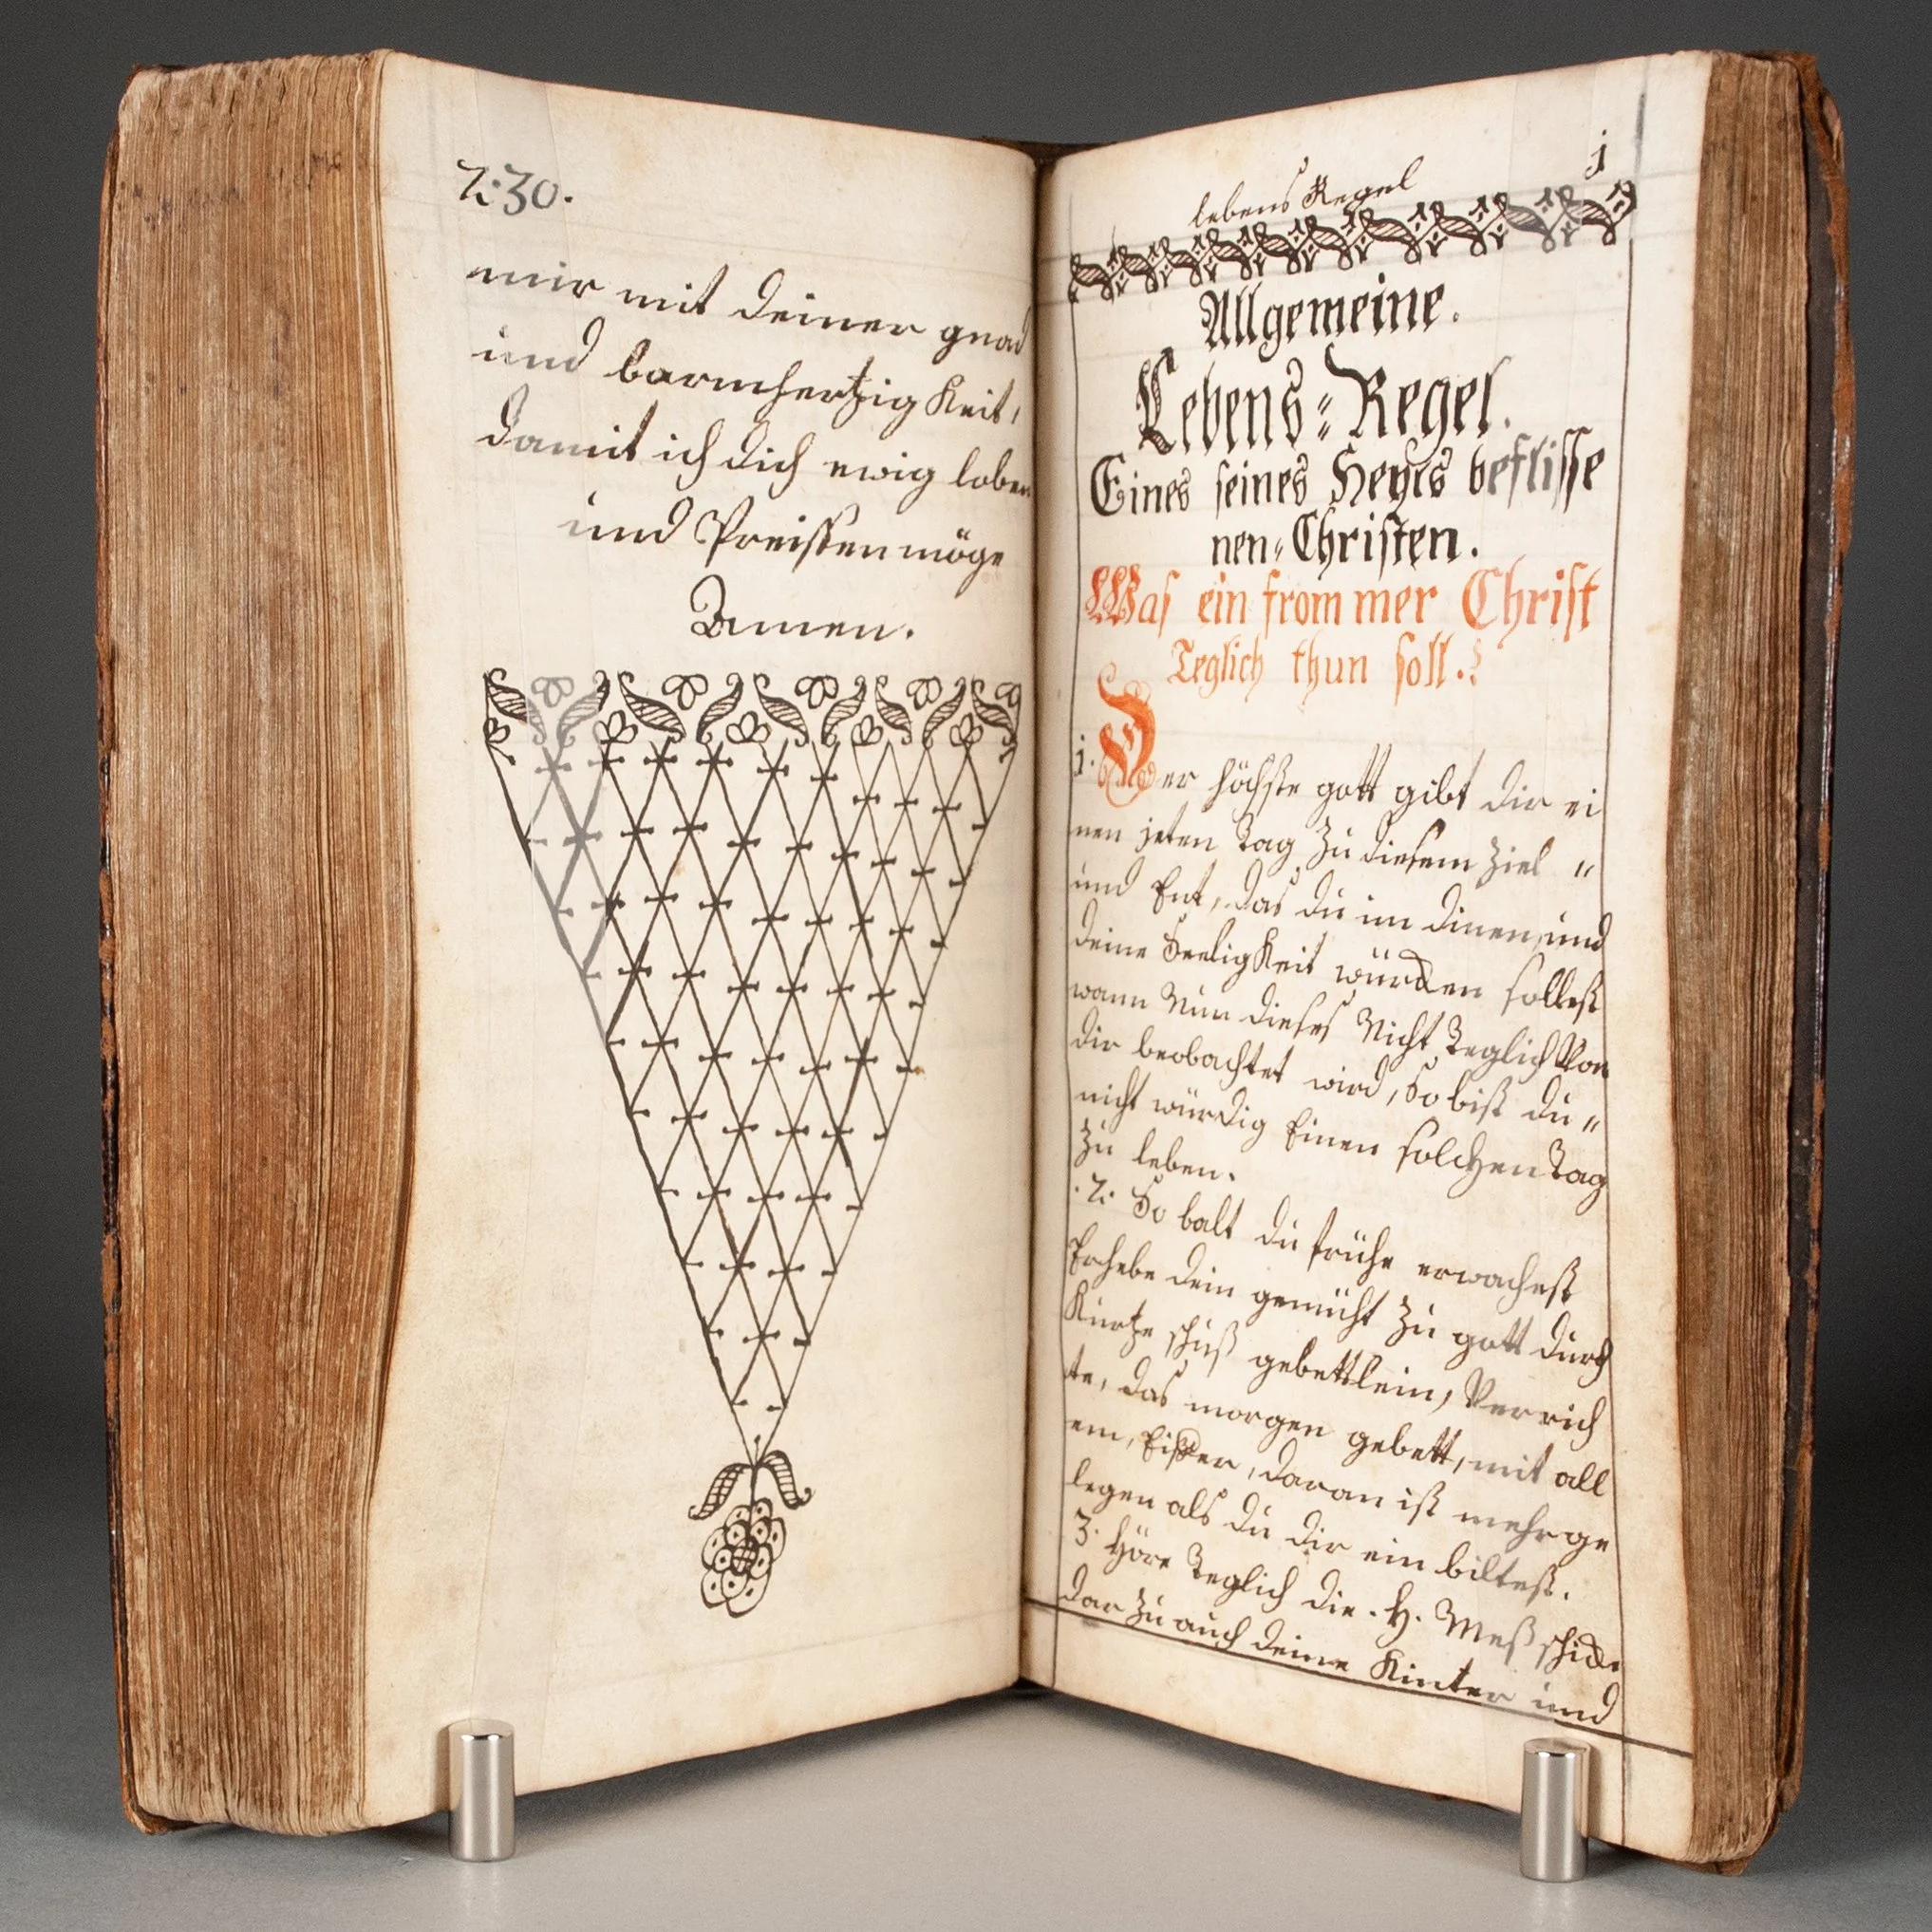 2:30.
mir mit deiner gnad
und barmhertzigkeit,
damit ich dich ewig loben
und Preissen möge
Amen.
lebens Regel
1
Allgemeine.
Lebens=Regel.
Eines seines Heyls beflisse
nen=Christen.
Was ein frommer Christ
Teglich thun soll.
1. Der höchste gott gibt dir ei
nen jeten Tag zu diesem Ziel "
und Ent, das du im dinen, und
deine Seeligkeit würcken sollest
wann Nun dieses Nicht Teglich Von
dir beobachtet wird, So bist du "
nicht würdig Einen solchen Tag
zu leben.
.2. So balt du frühe erwachest
Erhebe dein gemüht zu gott durch
Kurtze schuß gebettlein, Verrich
te, das morgen gebett, mit all
em, Eiffer, daran ist mehr ge
legen als du dir ein biltest.
3. Höre Teglich die. H. Meß schicke
dar zu auch deine Kinter und